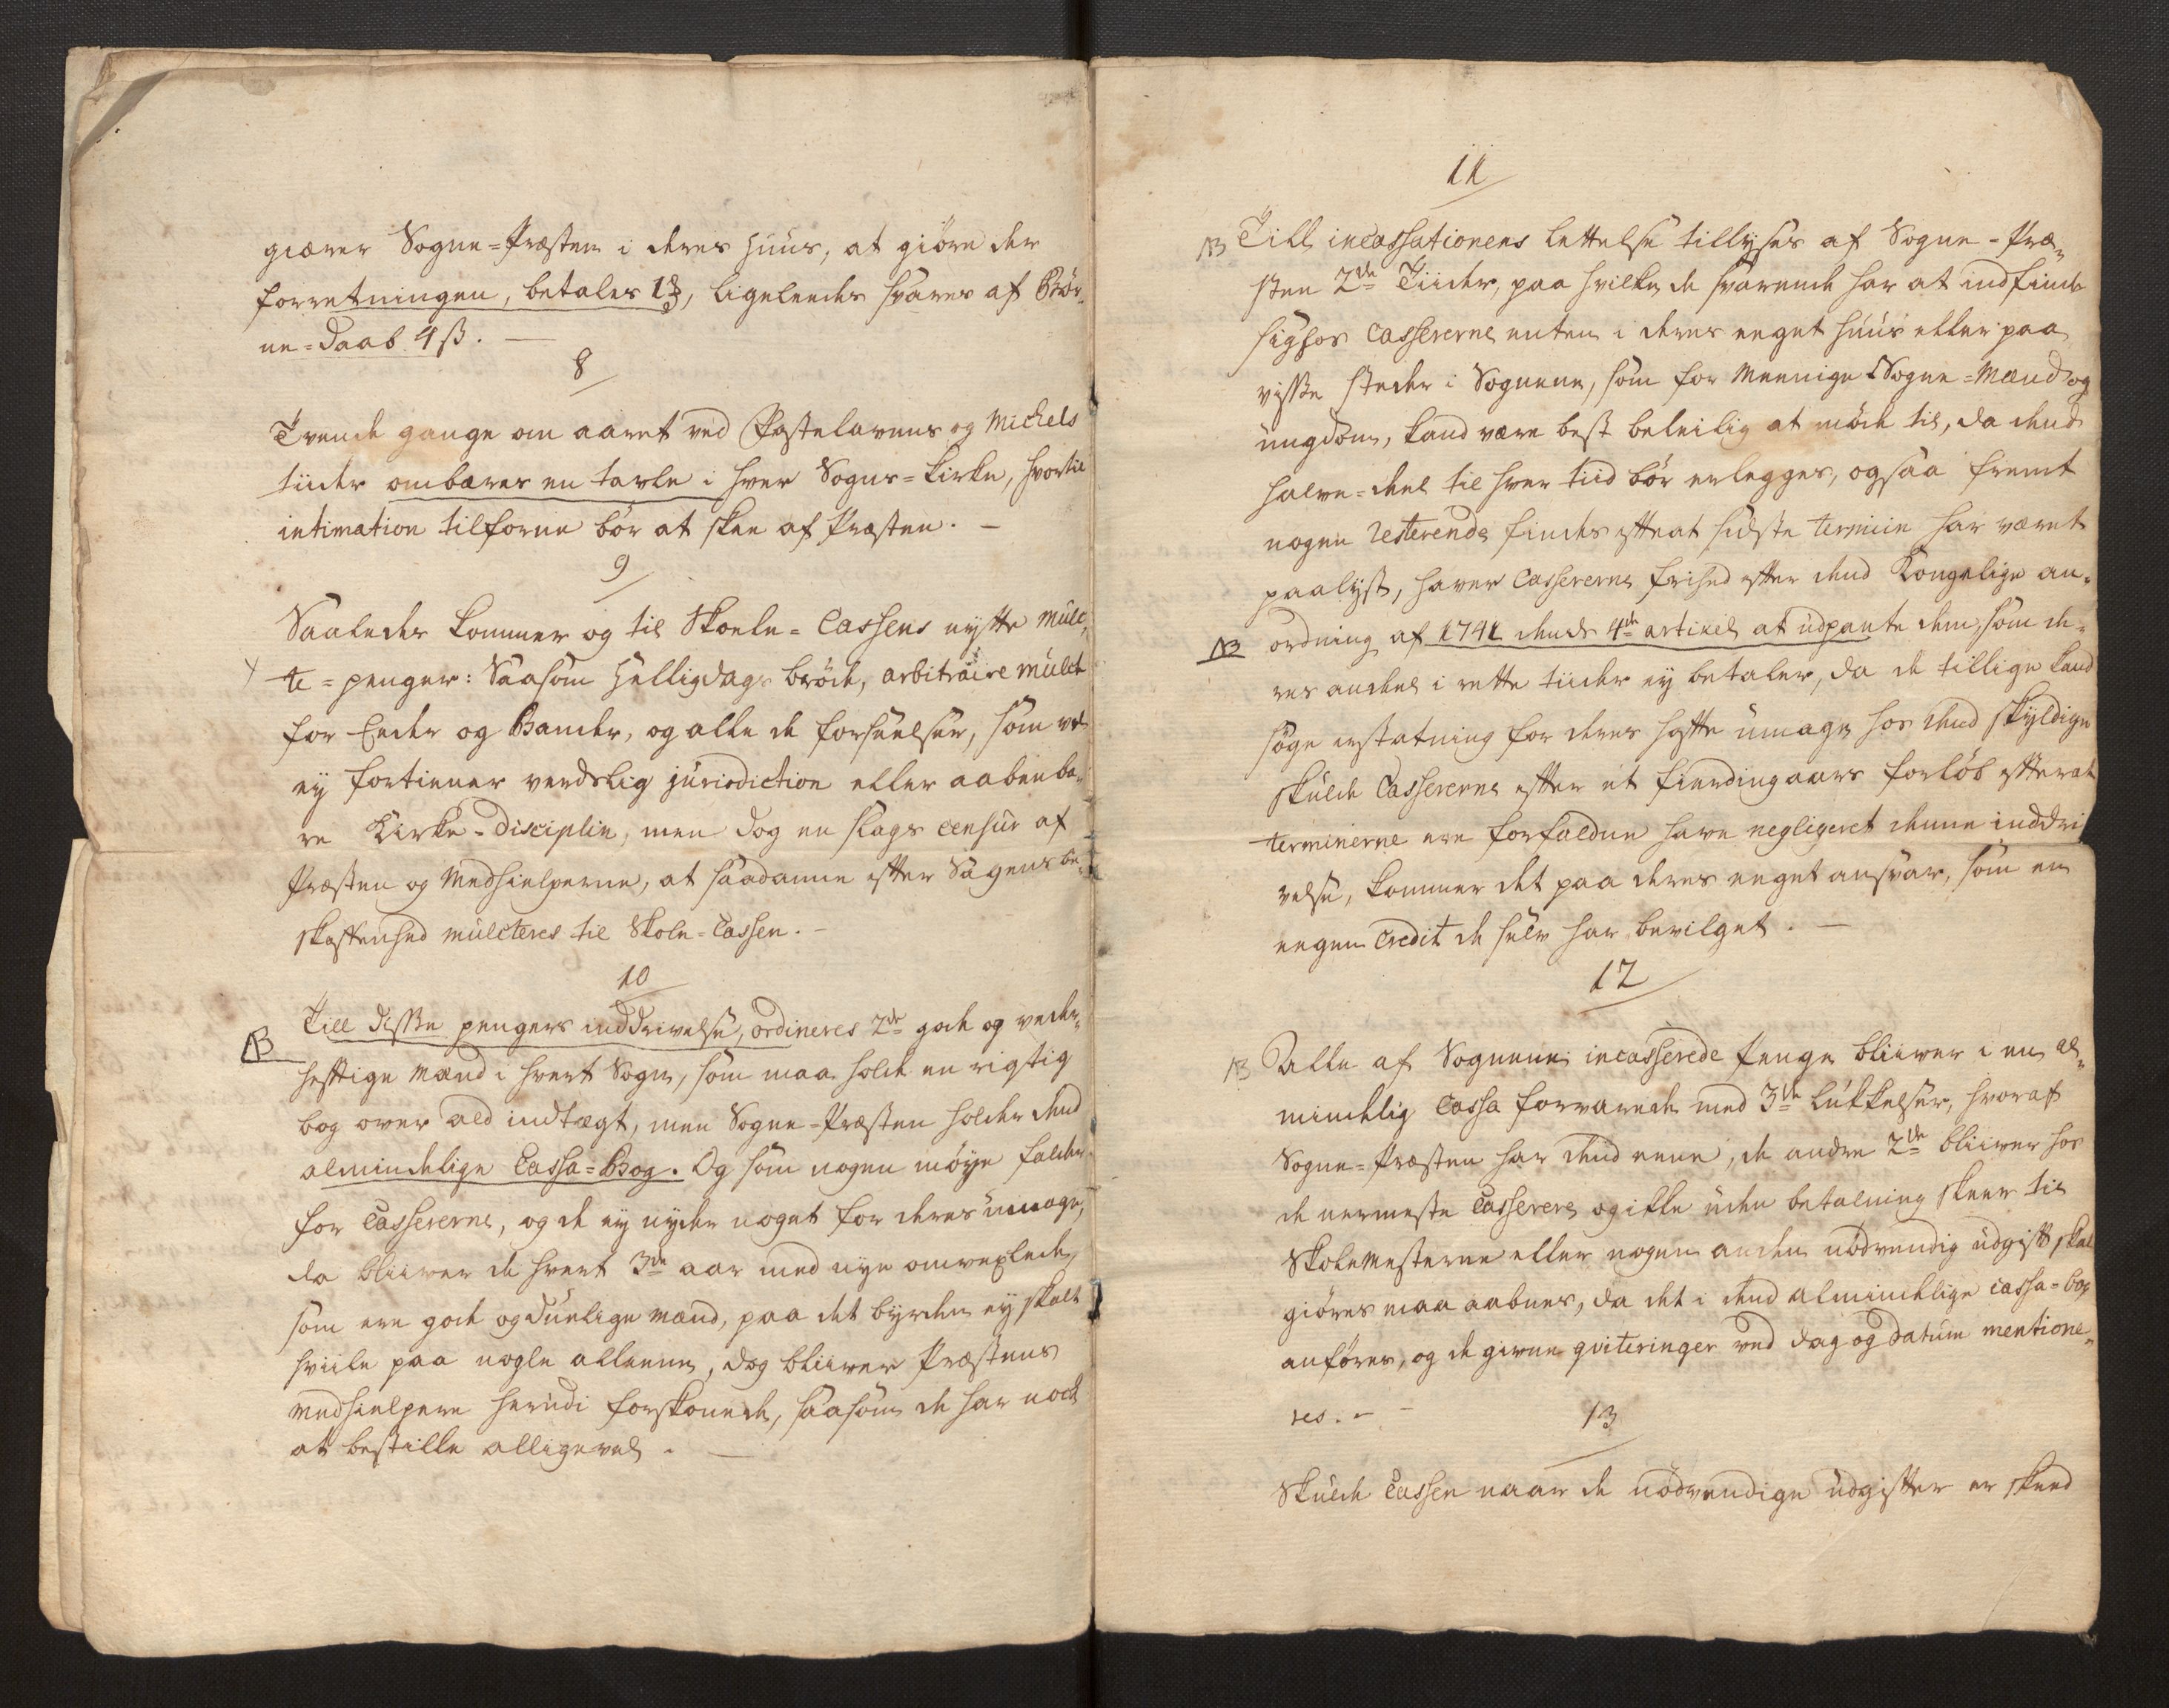 giærer Sogne-Præsten i deres Huus, at giöre der
forretningen, betaler 1 ℔, ligeleedes svares af Bör,,
ne-Daab 4 ß. —
8
Tvende gange om aaret ved Fastelavens og Michels
tiider ombæres en tavle i hver Sogne-Kirke, hvortil
intimation tilforne bör at skee af Præsten. —
9
Saaledes kommer og til Skoele-Cassens nytte Mulc,,
te-penger: Saasom Helligdags bröde, arbitraire Mulct
for Eeder og Bander, og alle de forseelser, som vel
ey fortiener verdslig jurisdiction eller aabenba,,
re Kirke-Disciplin, men dog en slags censur af
Præsten og Medhielperne, at saadanne efter Sagens be,,
skaffenhed mulcteres til Skole-Cassen. —
10
NB Till disse pengers inddrivelse, ordineres 2de gode og veder,,
hefftige Mænd i hvert Sogn, som maa holde en rigtig
bog over ald indtægt, men Sogne-Præsten holder dend
almindelige Cassa-Bog. Og som nogen möye falder
for Cassererne, og de ey nyder noget for deres umage,
da bliiver de hvert 3de aar med nye omvexlede,
som ere gode og duelige Mænd, paa det byrden ey skall
hviile paa nogle alleene, dog bliiver Præstens
Medhielpere herudi forskonede, saasom de har nock
at bestille alligevel. —
11
NB Till incassationens lettelse tillyses af Sogne-Præ,,
sten 2de Tiider, paa hvilke de svarende har at indfinde
sig hos Cassererne enten i deres eeget huus eller paa
visse steder i Sognene, som for Meenige Sogne-Mænd og
ungdom, kand være best beleilig at möde til, da dend
halve-deel til hver tiid bör erlegges, og saa fremt
nogen resterende findes efterat sidste termiin har været
paalyst, haver Cassererne frihed efter dend Kongelige an,,
NB ordning af 1741 dends 4de artikel at udpante dem, som de,,
res andeel i rette tiider ey betaler, da de tillige kand
söge erstatning for deres hafte umage hos dend skyldige
skulde Cassererne efter et fierdingaars forlöb efterat
terminerne ere forfaldne have negligeret denne inddri
velse, kommer det paa deres eeget ansvar, som en
eegen Credit de selv har bevilget. —
12
NB Alle af Sognene incasserede Penge bliiver i en al,,
mindelig Cassa forvarede med 3de Lukkelser, hvoraf
Sogne-Præsten har dend eene, de andre 2de bliiver hos
de nermeste Casserere og ikke uden betalning skeer til
Skolemesterne eller nogen anden nödvendig udgift skal
giöres maa aabnes, da det i dend almindelige Cassa-bog
anföres, og de givne qviteringer ved dag og datum mentione,,
res. —
13
Skulde Cassen naar de nödvendige udgifter er skeed